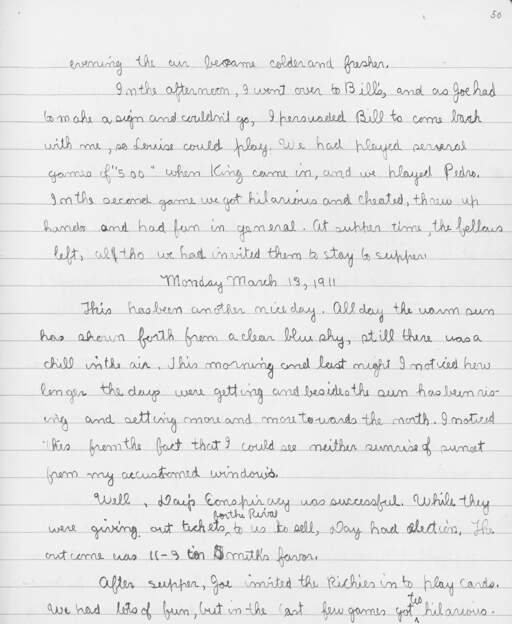 50
evening the air became colder and fresher.
In the afternoon, I went over to Bill's, and as Joe had
to make a sign and couldn't go, I persuaded Bill to come back
with me, so Louise could play. We had played several
games of "500" when King came in, and we played Pedro.
In the second game we got hilarious and cheated, threw up
hands and had fun in general. At supper time, the fellows
left, altho we had invited them to stay to supper.
Monday March 13, 1911
This has been another nice day. All day the warm sun
has shown forth from a clear blue sky, still there was a
chill in the air. This morning and last night I noticed how
longer the days were getting and besides the sun has been ris-
ing and setting more and more towards the north. I noticed
this from the fact that I could see neither sunrise of sunset
from my accustomed windows.
Well, Day's Conspiracy was successful. While they
were giving out tickets, for the Rivals to us to sell, Day had election. The
outcome was 11-9 in Smith's favor.
After supper, Joe invited the Richies in to play cards.
We had lots of fun, but in the last few games got too hilarious.